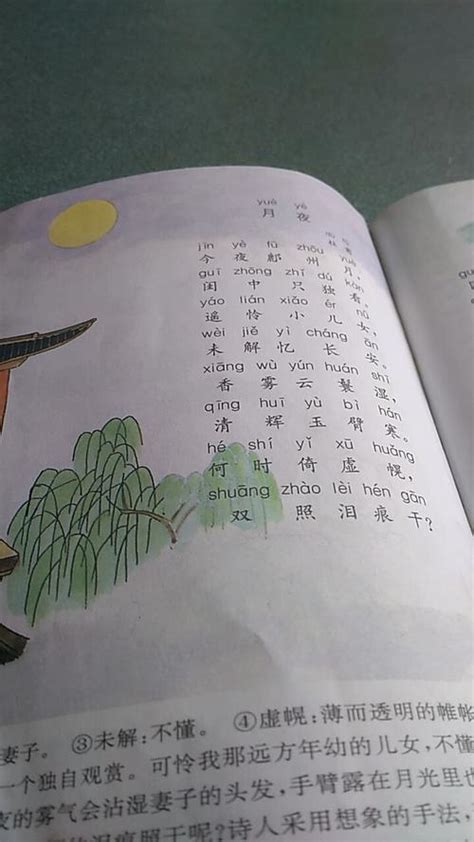 yuè yè
月 夜
jīn yè fū zhōu yuè
今 夜 鄜 州 月，
guī zhōng zhǐ dú kàn
闺 中 只 独 看。
yáo lián xiǎo ér nǚ
遥 怜 小 儿 女，
wèi jiě yì cháng ān
未 解 忆 长 安。
xiāng wù yún huán shī
香 雾 云 鬟 湿，
qīng huī yù bì hán
清 辉 玉 臂 寒。
hé shí yǐ xū huǎng
何 时 倚 虚 幌，
shuāng zhào lèi hén gān
双 照 泪 痕 干？
妻子。 ③未解：不懂。 ④虚幌：薄而透明的帷帐
一个独自观赏。可怜我那远方年幼的儿女，不懂
夜的雾气会沾湿妻子的头发，手臂露在月光里也
的泪痕照干呢？诗人采用想象的手法，